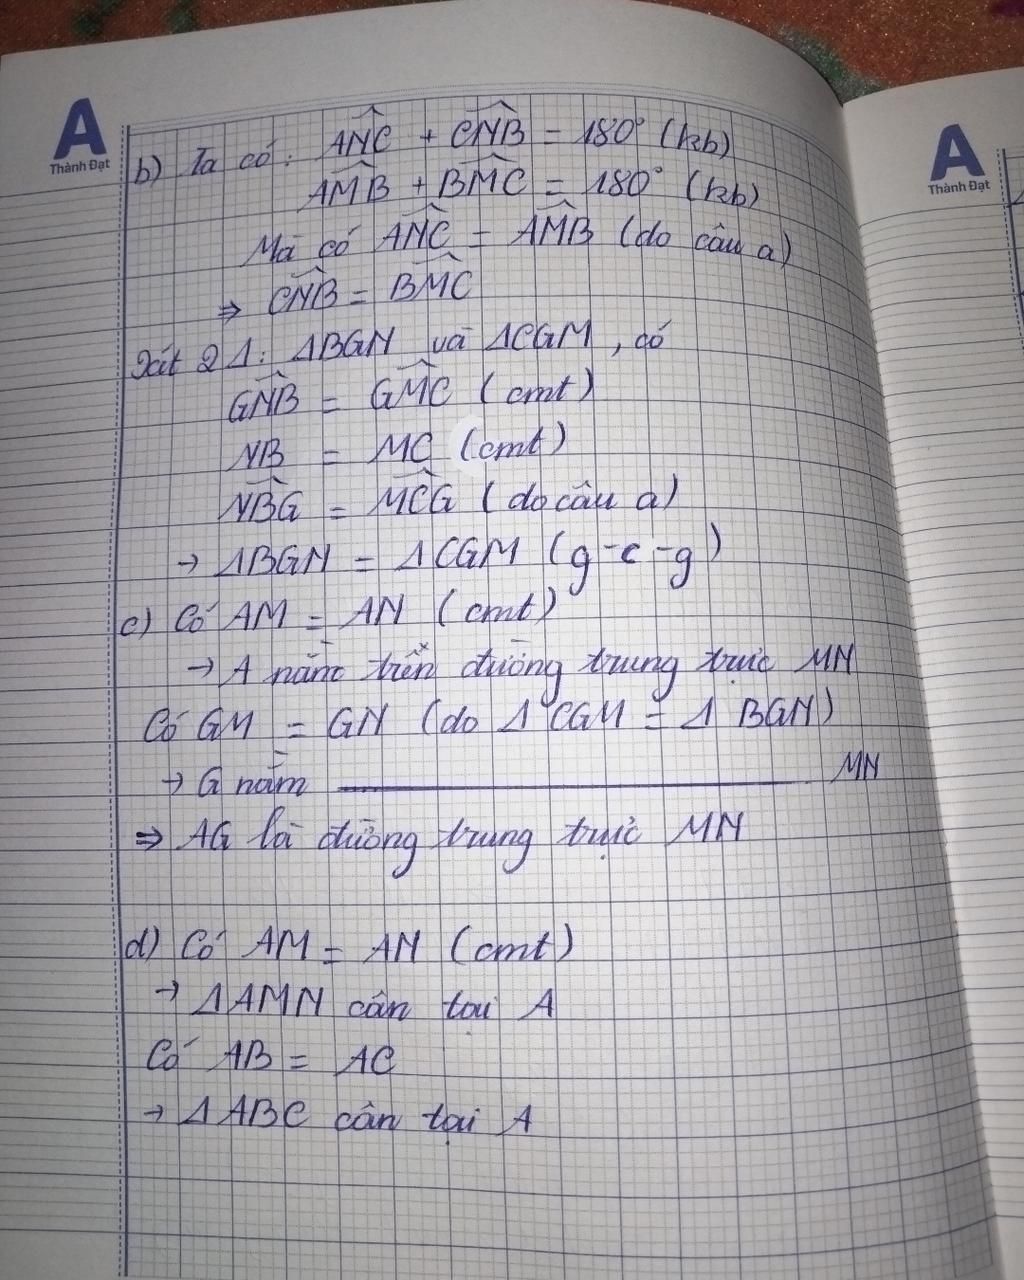 A
Thành Đạt
A
Thành Đạt
b) Ta có: ANC + CNB = 180° (kb)
AMB + BMC = 180° (kb)
Mà có ANC = AMB (do câu a)
⇒ CNB = BMC
Xét 2 Δ: ΔBGN và ΔCGM, có
GNB = GMC (cmt)
NB = MC (cmt)
NBG = MCG (do câu a)
→ ΔBGN = ΔCGM (g-c-g)
c) Có AM = AN (cmt)
→ A nằm trên đường trung trực MN
Có GM = GN (do Δ CGM = Δ BGN)
→ G nằm ———————— MN
⇒ AG là đường trung trực MN
d) Có AM = AN (cmt)
→ ΔAMN cân tại A
Có AB = AC
→ ΔABC cân tại A